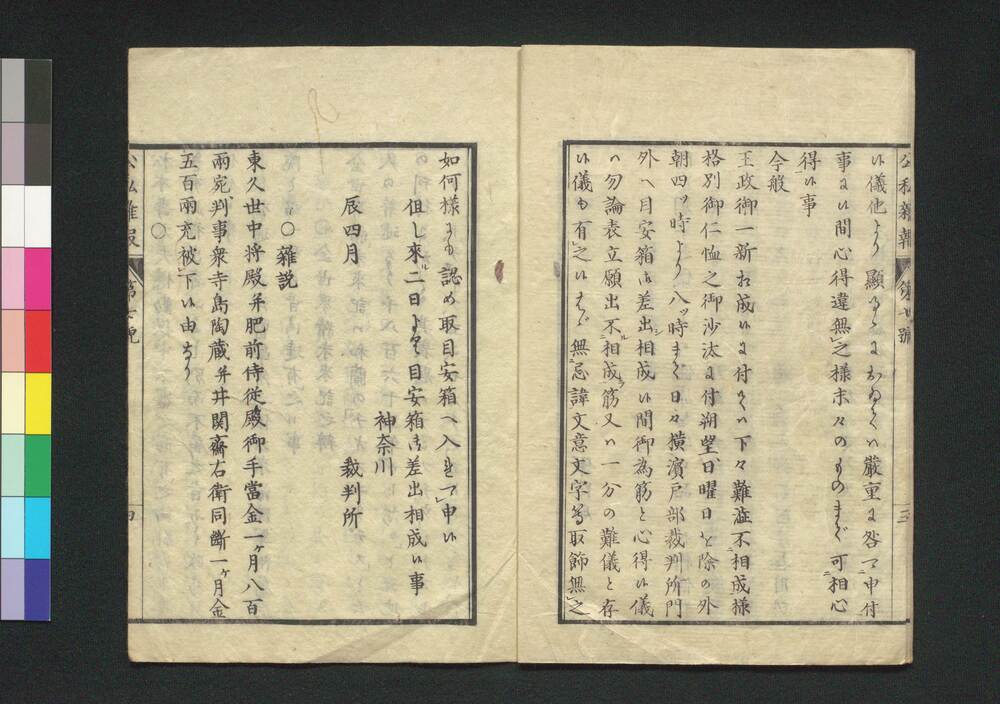 公私雜報 第七號 三
い儀他より顯るゝにおゐてハ嚴重に咎可申付
事にい間心得違無之樣末々のものまで可相心
得い事
今般
王政御一新相成いに付てハ下々難澁不相成樣
格別御仁恤之御沙汰に付朔望日曜日を除の外
朝四ッ時より八ッ時まで日々橫濱戸部裁判所門
外へ目安箱御差出相成い間御為筋と心得い儀
ハ勿論表立願出不相成筋又ハ一分の難儀と存
い儀も有之いはゞ無忌諱文意文字等取飾無之
如何樣にも認め取目安箱へ入可申い
但し來ル二日より目安箱御差出相成い事
神奈川
辰四月 裁判所
○雜説
東久世中将殿并肥前侍従殿御手當金一ヶ月八百
兩宛判事衆寺島陶蔵并井関齋右衛同斷一ヶ月金
五百兩充被下い由なり
○
公私雜報 第七號 四